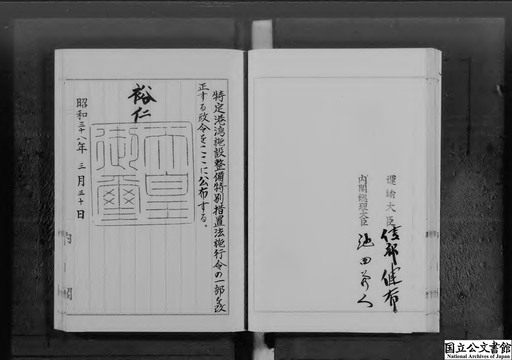 特定港湾施設整備特別措置法施行令の一部を改
正する政令をここに公布する。
裕仁
天皇
御璽
昭和三十八年 三月三十日
内閣
運輸大臣 綾部健太郎
内閣総理大臣 池田勇人
国立公文書館
National Archives of Japan